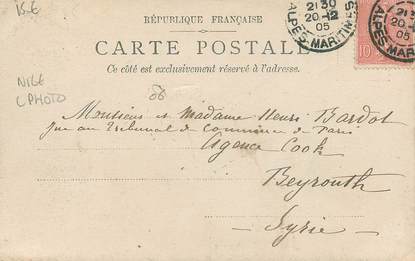 15.E
RÉPUBLIQUE FRANÇAISE
CARTE POSTALE
Ce côté est exclusivement réservé à l'adresse.
21 30
20-12
05
ALPES MARITIMES
21 30
20-12
05
ALPES MAR
10
NICE
LPHOTO
Monsieur et Madame Henri Bardot
Juge au Tribunal de Commerce de Paris
Agence Cook
Beyrouth
Syrie